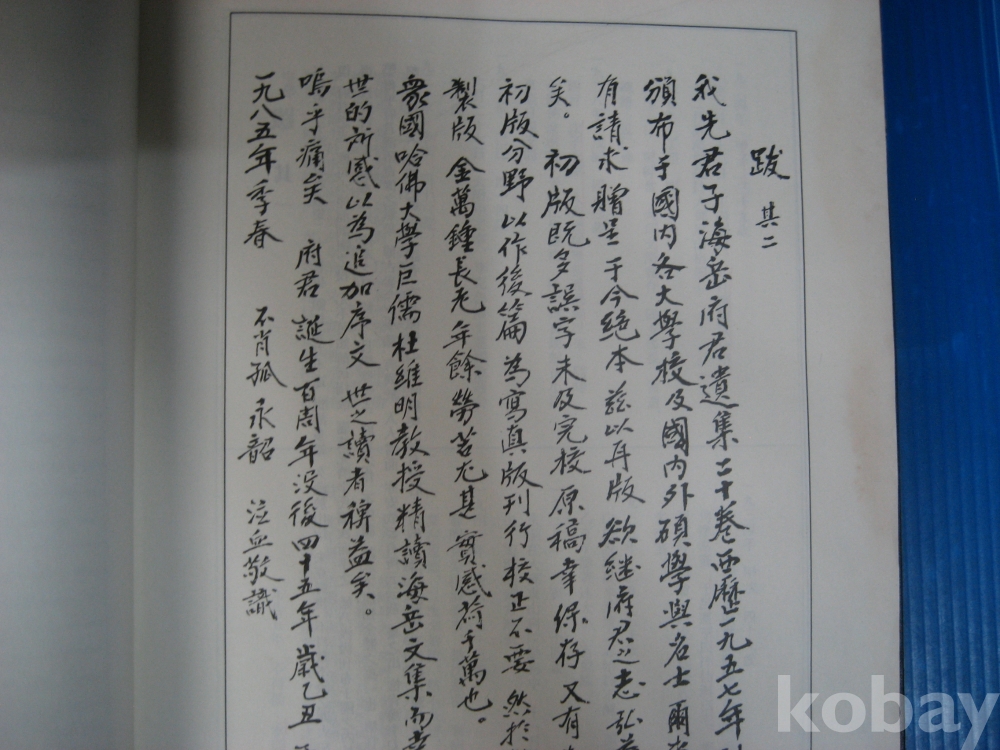 跋 其二
我先君子海岳府君遺集二十卷西曆一九五七年
頒布于國内各大學校及國内外碩學與名士爾
有請求贈呈于今絶本茲以再版欲継府君之志弘
矣。 初版既多誤字未及完校原稿幸保存又有
初版分野以作後篇為寫真版刊行校正不要然於
製版金萬鍾長老年餘勞苦尤甚實感荷千萬也。
衆國哈佛大學巨儒杜維明教授精讀海岳文集而
世的所感以為追加序文世之讀者裨益矣。
嗚乎痛矣 府君誕生百周年没後四十五年歳乙丑
一九八五年季春 不肖孤永韶 泣血敬識
kobay